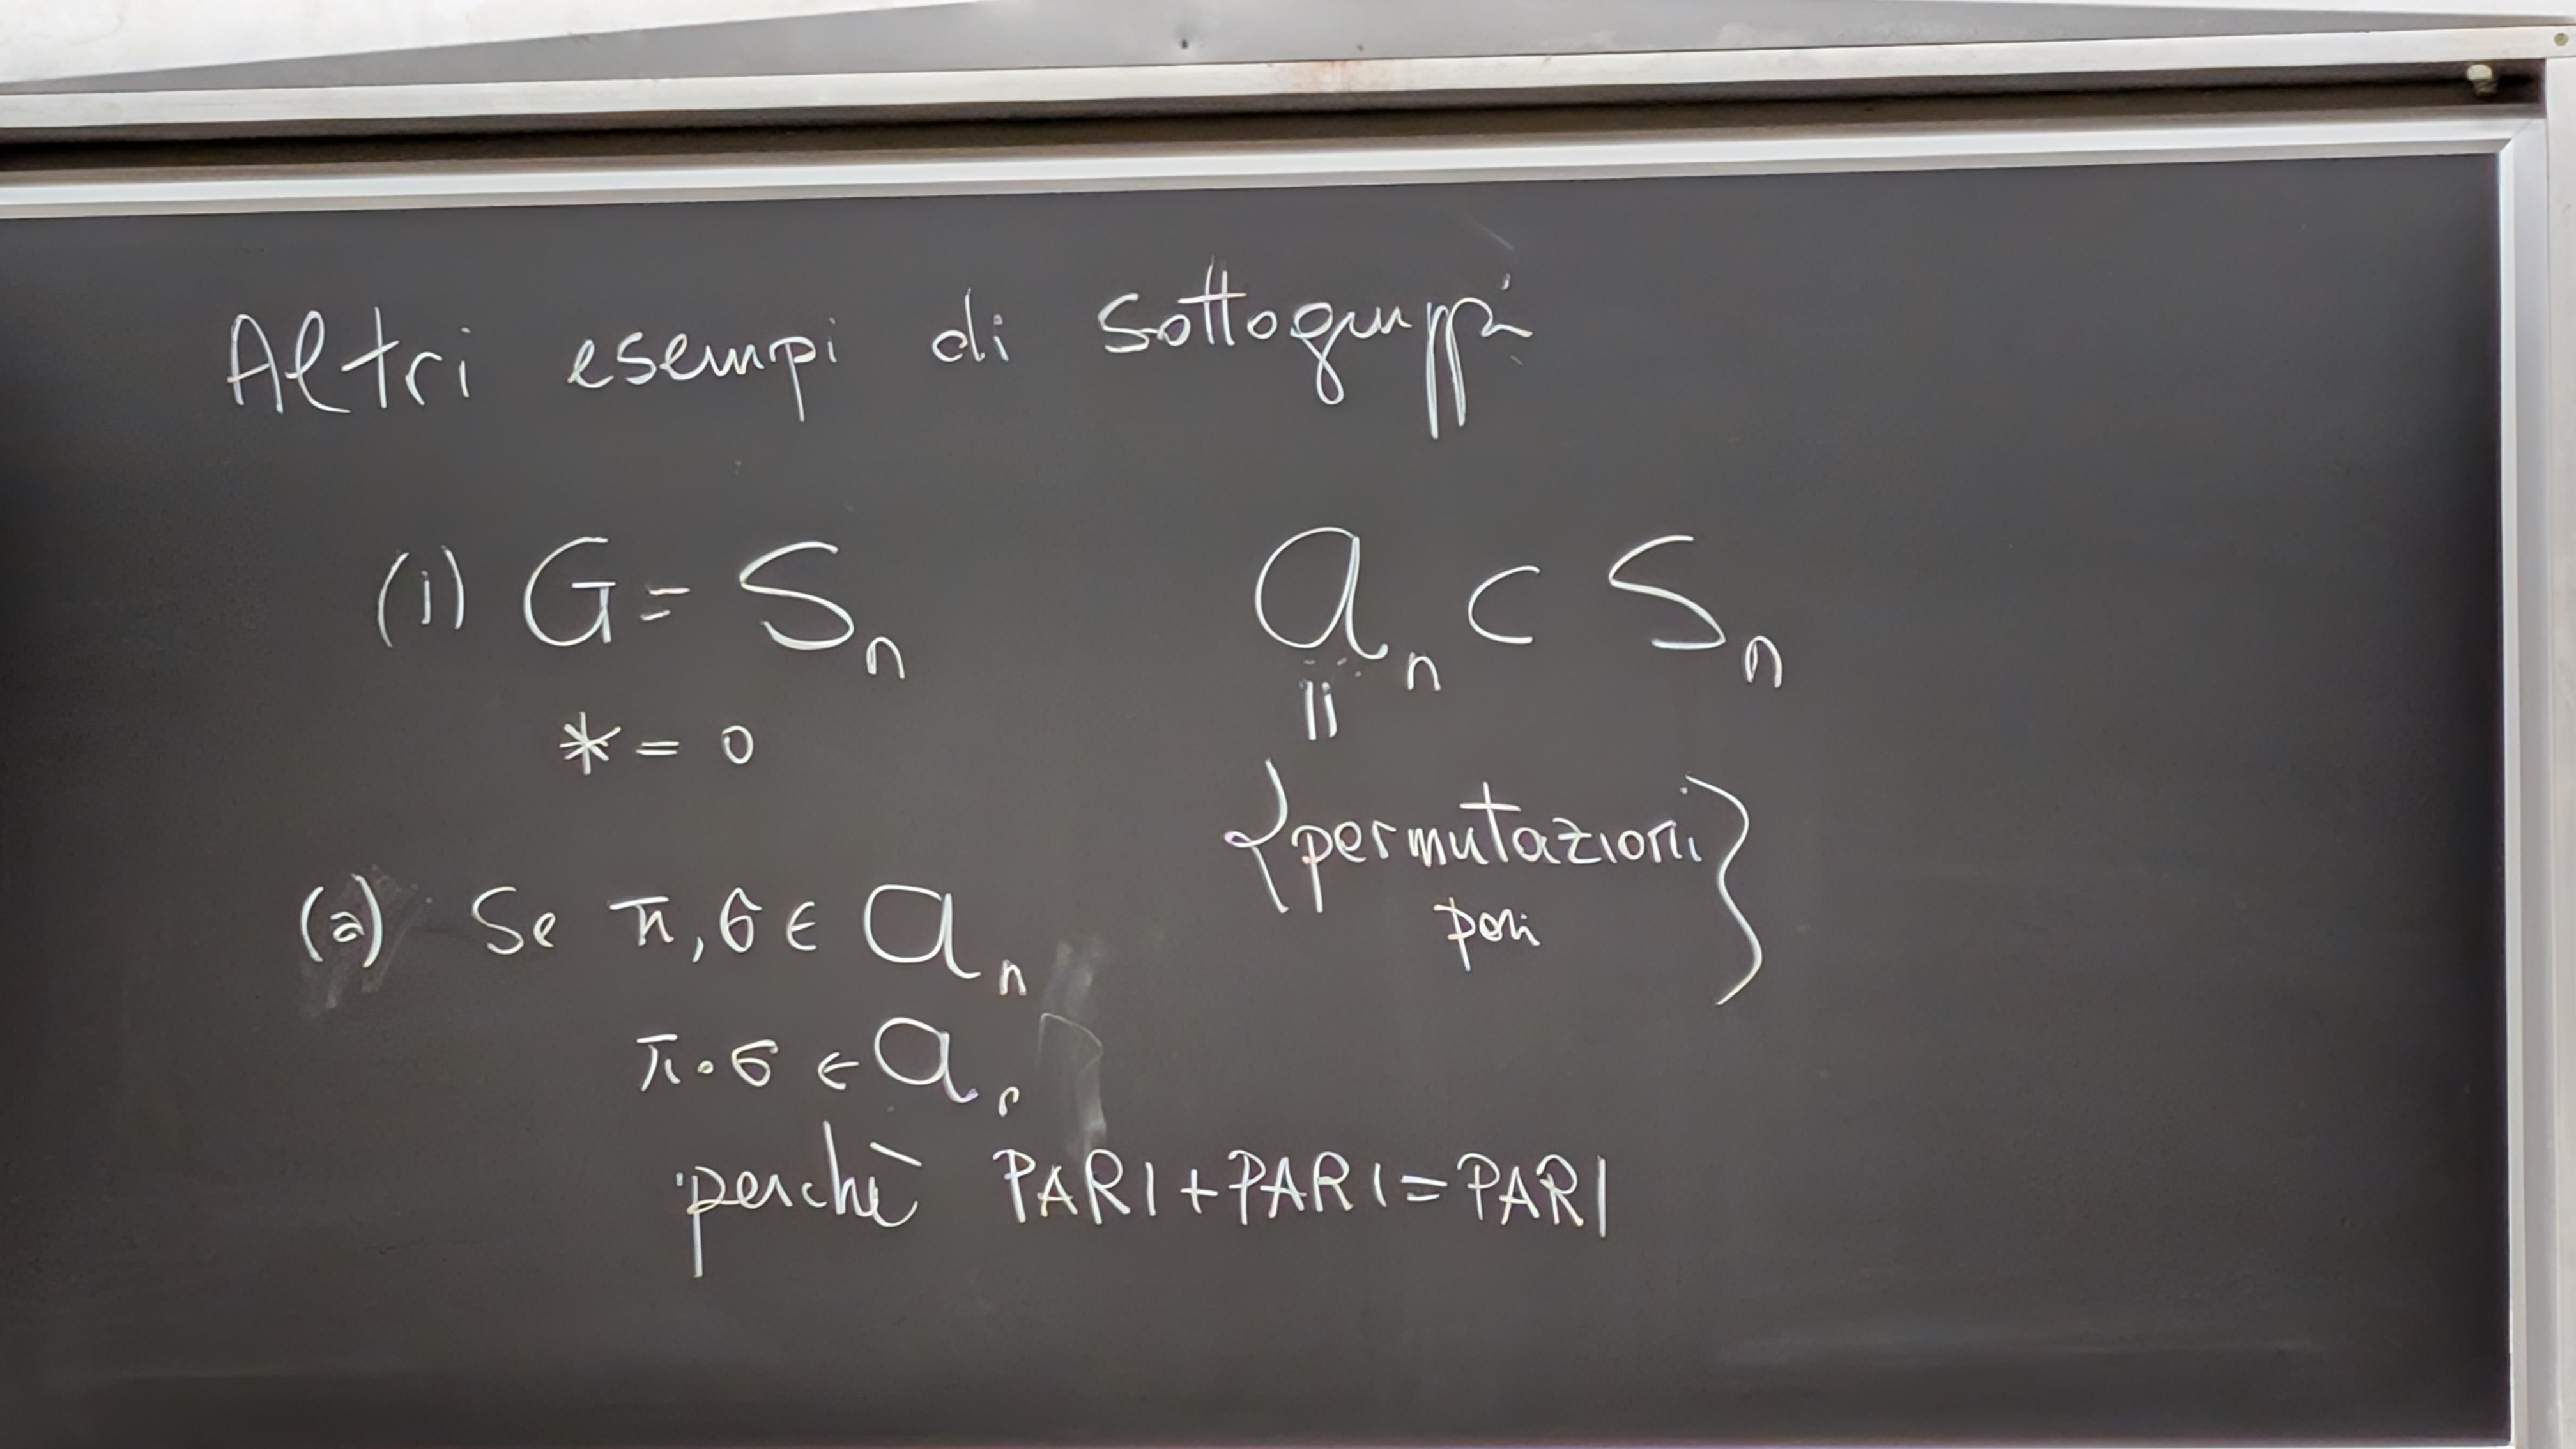 Altri esempi di sottogruppi
(1) G = Sₙ
* = ∘
𝒜ₙ ⊂ Sₙ
||
{permutazioni
pari}
(a) Se π, σ ∈ 𝒜ₙ
π∘σ ∈ 𝒜ₙ
perchè PARI+PARI=PARI